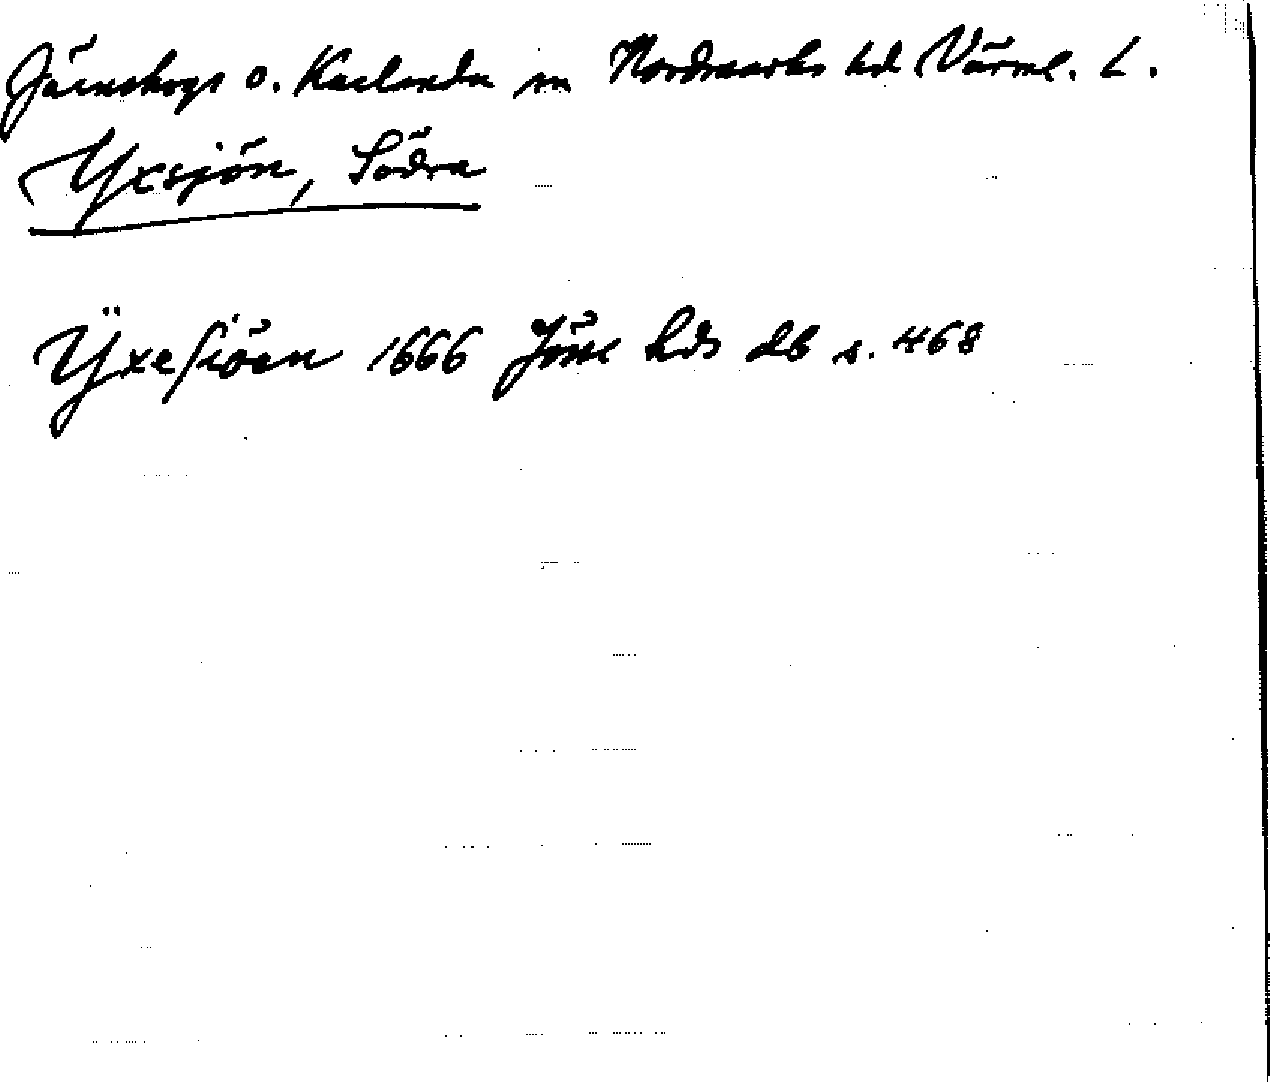 Järnskogs o. Karlanda sn Nordmarks hd Värml. L.
Yxsjön, Södra
Ÿxesiöen 1666 Jösse hds db s. 468